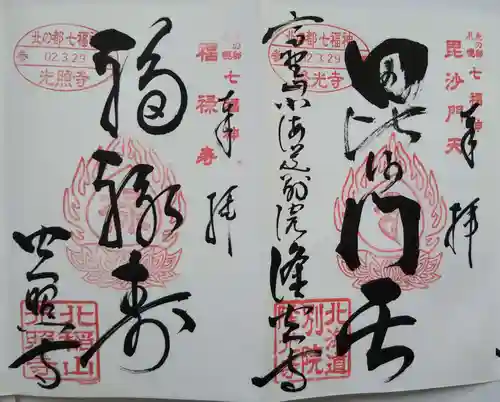 北の都七福神
02.3.29
光寺
七福神
毘沙門天
奉拝
毘沙門天
高野山北海道別院
隆光寺
北海道
別院
北の都七福神
02.3.29
光照寺
七福神
福禄寿
奉拝
福禄寿
光照寺
北稲山
光照寺